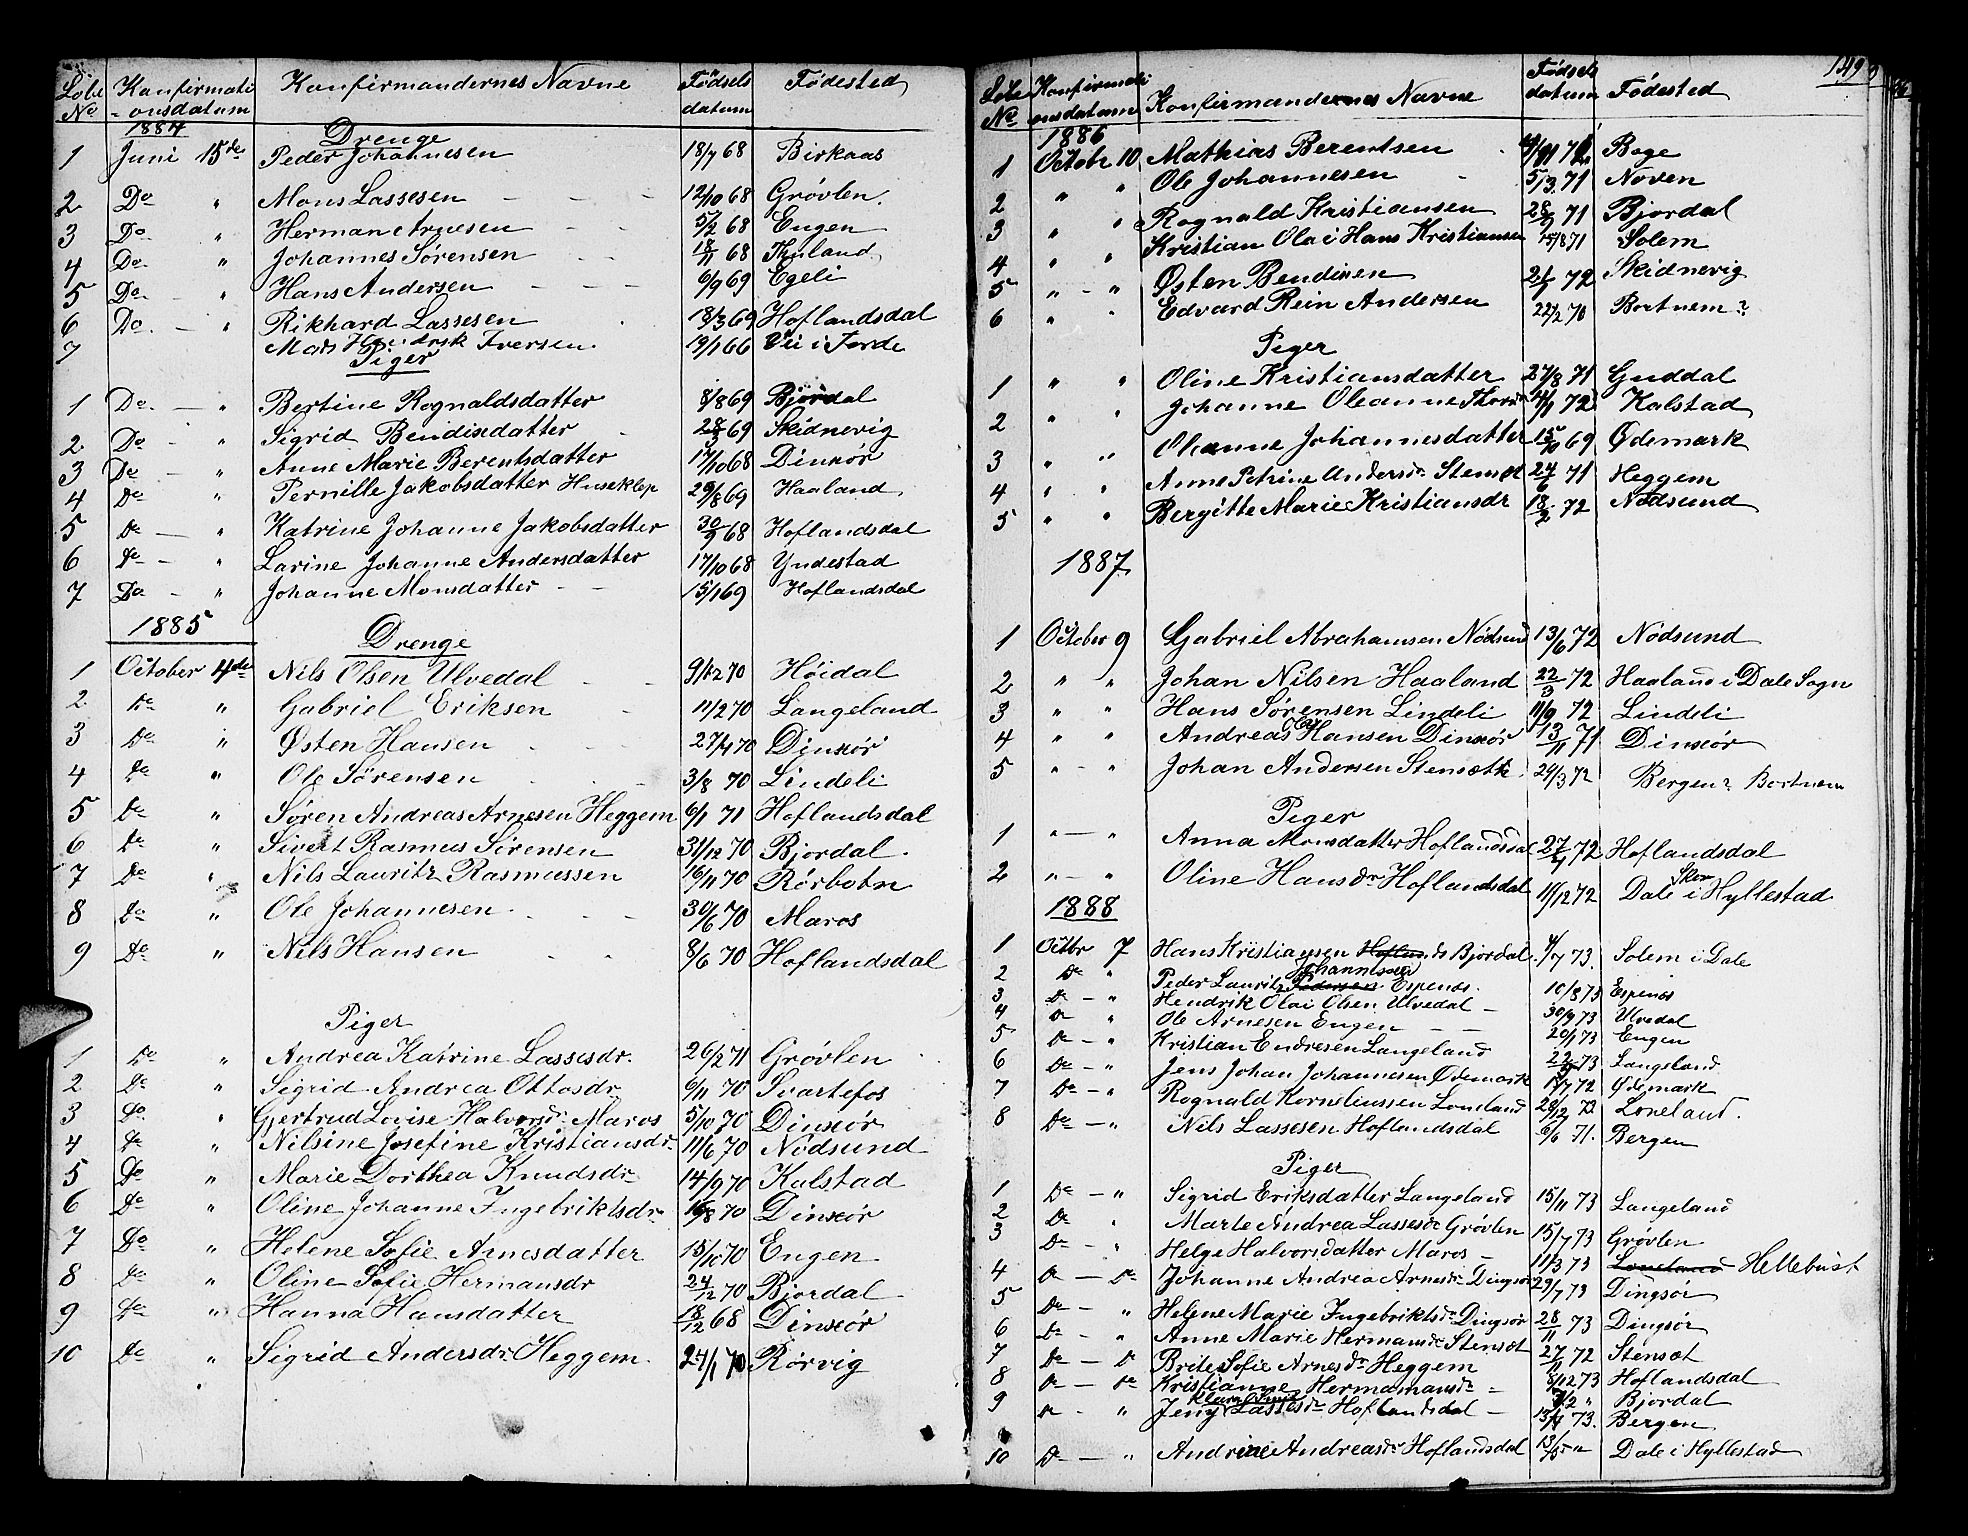 Löbe No Konfirmati-onsdatum Konfirmandernes Navne Fødselsdatum Fødested
1884 Drenge
1 Juni 15de Peder Johannesen 18/7 68 Birkaas
2 Do " Mons Lassesen 12/10 68 Grövlen
3 Do " Herman Arnesen 5/2 68 Engen
4 Do " Johannes Sørensen 18/11 68
5 Do " Hans Andersen 6/9 69 Egeli
6 Do " Rikhard Lassesen 18/3 69 Hoflandsdal
7 Mads Hendrik Iversen 19/1 66 Vii i Førde
Piger
1 Do " Bertine Rognaldsdatter 8/8 69 Bjordal
2 Do " Sigrid Bendixdatter 28/3 69 Skidnevig
3 Do " Anne Marie Berentsdatter 17/10 68 Dinsør
4 Do " Pernille Jakobsdatter Huseklep 29/8 69 Haaland
5 Do " Katrine Johanne Jakobsdatter 30/9 68 Hoflandsdal
6 Do " Larine Johanne Andersdatter 17/10 68 Yndestad
7 Do " Johanne Monsdatter 15/1 69 Hoflandsdal
1885 Drenge
1 October 4de Nils Olsen Ulvedal 9/12 70 Höidal
2 Do " Gabriel Eriksen 11/2 70 Langeland
3 Do " Østen Hansen 27/4 70 Dinsör
4 Do " Ole Sörensen 3/8 70 Lindeli
5 Do " Søren Andreas Arnesen Heggem 6/1 71 Hoflandsdal
6 Do " Sivert Rasmus Sörensen 31/12 70 Bjordal
7 Do " Nils Lauritz Rasmussen 16/11 70 Rörbotn
8 Do " Ole Johannesen 30/6 70 Maros
9 Do " Nils Hansen 8/6 70 Hoflandsdal
Piger
1 Do " Andrea Katrine Lassesdr. 26/2 71 Gròvlen
2 Do " Sigrid Andrea Ottosdr 6/11 70 Svartefos
3 Do Gjertrud Lovise Halvorsdr Maros 5/10 70 Dinsör
4 Do " Nilsine Josefine Kristiansdr 11/6 70 Nödsund
5 Do " Marie Dorthea Knudsdr 14/9 70 Kalstad
6 Do " Oline Johanne Ingebriktsdr 16/8 70 Dinsör
7 Do " Helene Sofie Arnesdatter 15/10 70 Engen
8 Do " Oline Sofie Hermansdr 24/12 70 Bjordal
9 Do " Hanna Hansdatter 18/12 68 Dinsör
10 Do " Sigrid Andersdr Heggem 24/1 70 Rörvig
149
Löbe No Konfirmationsdatum Konfirmandernes Navne Fødselsdatum Födested
1886
1 Octobr 10 Mathias Berentsen Boge
2 " " Ole Johannesen 5/3 71 Noven
3 " " Rognald Kristiansen 28/9 71 Bjordal
4 " " Kristian Olai Hans Kristiansen 15/8 71 Solem
5 " " Østen Bendixen 2/1 72 Skidnevig
6 " " Edvard Rein Andersen 22/2 70 Bortnem?
Piger
1 " " Oline Kristiansdatter 27/8 71 Guddal
2 " Johanne Oleanne 72 Kalstad
3 " " Oleanne Johannesdatter 15/10 69 Ødemark
4 " " Anne Petrine Andersdr Stensæt 24/6 71 Heggem
5 " " Bergitte Marie Kristiansdr 18/2 72 Nødsund
1887
1 October 9 Gabriel Abrahamsen Nødsund 13/6 72 Nødsund
2 " " Johan Nilsen Haaland 22/3 72 Haaland i Dale Sogn
3 " " Hans Sørensen Lindeli 11/9 72 Lindeli
4 " " Andreas Olai Hansen Dinsör 13/11 71 Dinsör
5 " " Johan Andersen Stensæth 29/3 72 Bergen? Bortnem
Piger
1 " " Anna Monsdatter Hoflandsdal 27/4 72 Hoflandsdal
2 " " Oline Hansdr Hoflandsdal 11/12 72 Dale i Hyllestad
1888
1 Octbr 7 Hans Kristiansen Hoflands Bjordal 4/7 73 Solem i Dale
2 Do " Peder Lauritz Pedersen Johannesen Espenes 10/8 73 Espenes
3 Do " Hendrik Olai Olsen Ulvedal 30/9 73 Ulvedal
4 Do " Ole Arnesen Engen 20/1 73 Engen
5 Do " Kristian Endresen Langeland 73 Langeland
6 Do " Jens Johan Johannesen Ødemark 1/7 72 Ødemark
7 Do " Rognald Korneliussen Loneland 28/2 73 Loneland
8 Do " Nils Lassesen Hoflandsdal 6/6 71 Bergen
Piger
1 Do " Sigrid Eriksdatter Langeland 15/11 73 Langeland
2 Do " Marte Andrea Lassesdr Gròvlen 15/7 73 Gròvlen
3 Do " Helge Halvorsdatter Maros 11/3 73 Loneland Hellebust
4 Do Do Johanne Andrea Arnesdr Dingsör 29/7 73 Dingsör
5 Do " Helene Marie Ingebriktsdr Dingsör 28/11 73 Dingsör
6 Do " Anne Marie Hermansdr Stensæt 27/11 72 Stensæt
7 Do Do Brite Sofie Arnesdr Heggem 8/12 73 Hoflandsdal
8 Do Do Kristianne Hermamansdr " Bjordal
9 Do " Jeny Lassesdr Hoflandsdal 73. Bergen
10 Do " Andrine Andreasdr Hoflandsdal 13/5 " Dale i Hyllestad